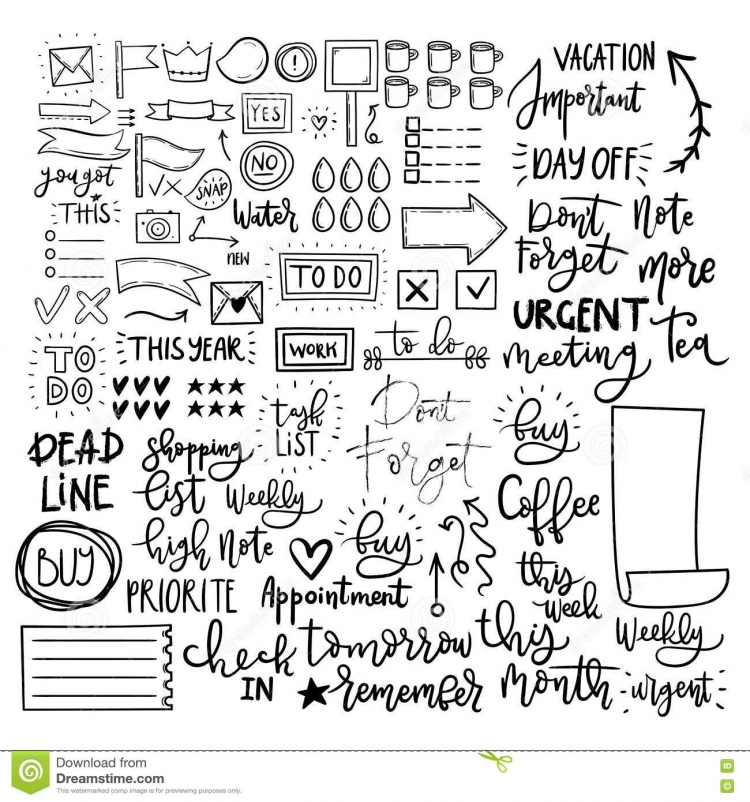 VACATION
Important
YES
DAY OFF
NO
you got
THIS
SNAP
Water
NEW
Don't
Forget
Note
more
TO DO
URGENT
Tea
meeting
THIS YEAR
WORK
to do
TO
DO
task
LIST
Don't
Forget
buy
DEAD
LINE
shopping
list
Weekly
Coffee
high Note
buy
BUY
PRIORITE
Appointment
this
week
check
IN
tomorrow
remember
this
month
Weekly
urgent
Download from
Dreamstime.com
This watermarked comp image is for previewing purposes only.
ID